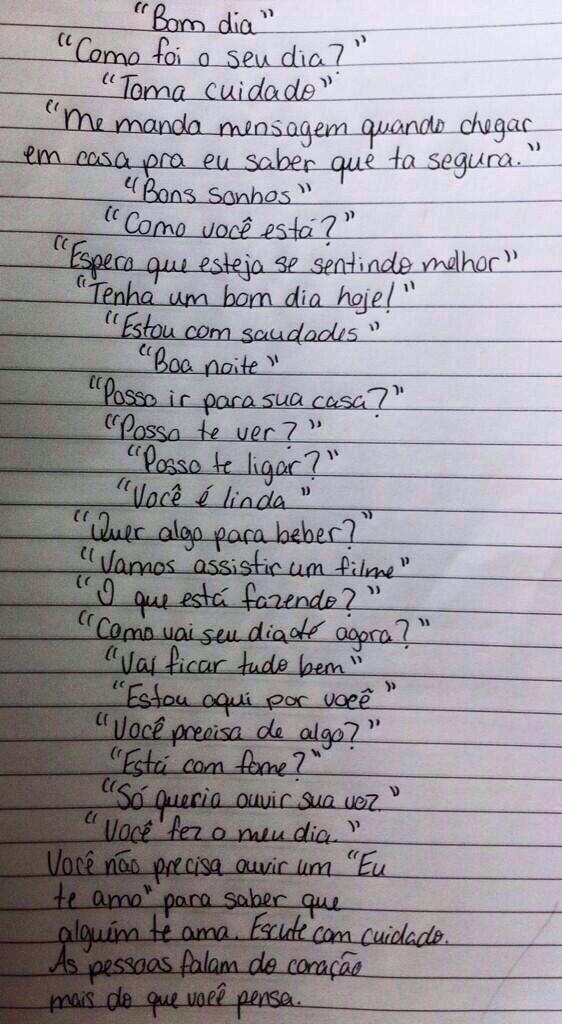 "Bom dia"
"Como foi o seu dia?"
"Toma cuidado"
"Me manda mensagem quando chegar
em casa pra eu saber que ta segura."
"Bons sonhos"
"Como você está?"
"Espero que esteja se sentindo melhor"
"Tenha um bom dia hoje!"
"Estou com saudades"
"Boa noite"
"Posso ir para sua casa?"
"Posso te ver?"
"Posso te ligar?"
"Você é linda"
"Quer algo para beber?"
"Vamos assistir um filme"
"O que está fazendo?"
"Como vai seu dia até agora?"
"Vai ficar tudo bem"
"Estou aqui por você"
"Você precisa de algo?"
"Está com fome?"
"Só queria ouvir sua voz."
"Você fez o meu dia."
Você não precisa ouvir um "Eu
te amo" para saber que
alguém te ama. Escute com cuidado.
As pessoas falam do coração
mais do que você pensa.